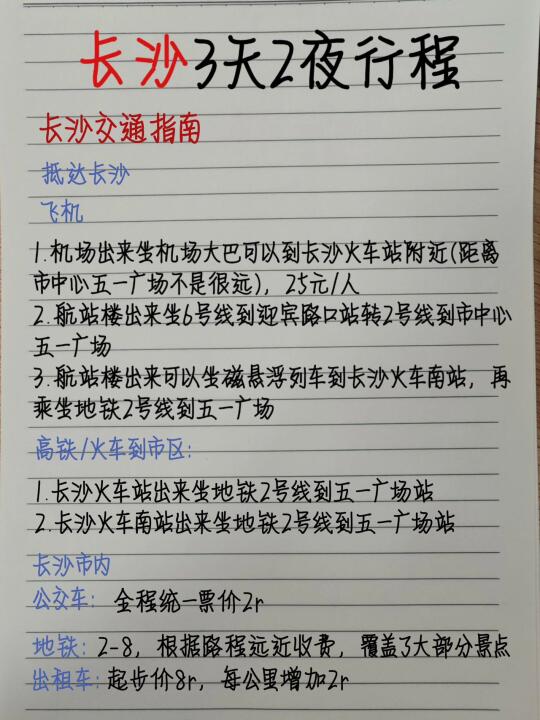 长沙3天2夜行程
长沙交通指南
抵达长沙
飞机
1.机场出来坐机场大巴可以到长沙火车站附近(距离
市中心五一广场不是很远)，25元/人
2.航站楼出来坐6号线到迎宾路口站转2号线到市中心
五一广场
3.航站楼出来可以坐磁悬浮列车到长沙火车南站，再
乘坐地铁2号线到五一广场
高铁/火车到市区:
1.长沙火车站出来坐地铁2号线到五一广场站
2.长沙火车南站出来坐地铁2号线到五一广场站
长沙市内
公交车: 全程统一票价2r
地铁: 2-8，根据路程远近收费，覆盖了大部分景点
出租车: 起步价8r，每公里增加2r